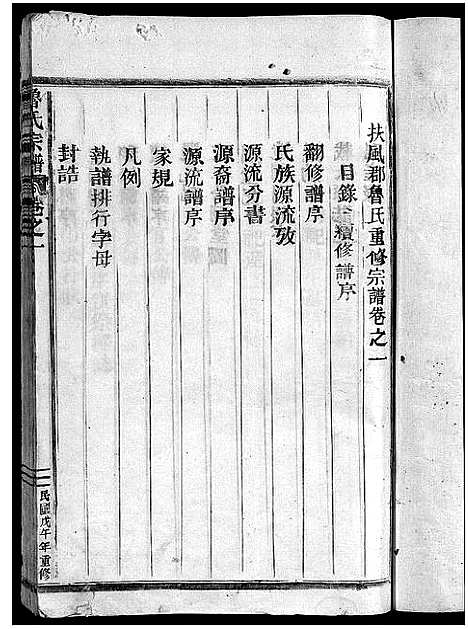 扶風郡魯氏重修宗譜卷之一
目錄 三續修譜序
翻修譜序
氏族源流攷
源流分書
源裔譜序
源流譜序
家規
凡例
執譜排行字母
封誥
魯氏宗譜 卷之一
民國戊午年重修